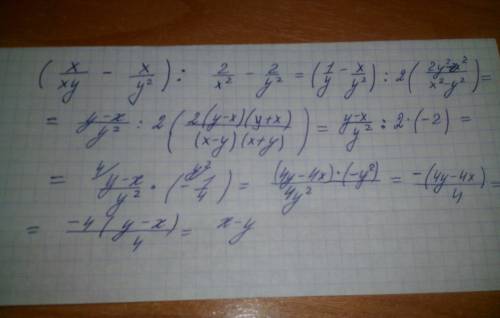 ( x/xy − x/y² ) : 2/x² − 2/y² = ( 1/y − x/y² ) : 2 ( 2y²−x²/x²−y² ) =
= y−x/y² : 2 ( 2(y−x)(y+x)/(x−y)(x+y) ) = y−x/y² : 2·(−2) =
= 4/ y−x/y² · ( − y²/4 ) = (4y−4x)·(−y²)/4y² = −(4y−4x)/4 =
= −4(y−x)/4 = x−y